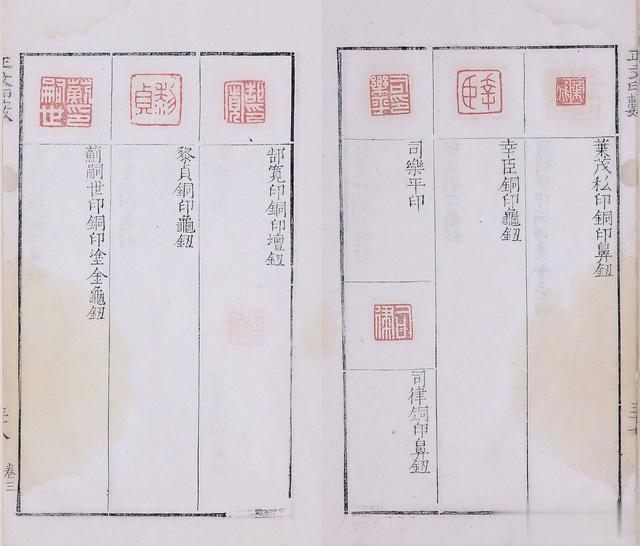 葉茂私印銅印鼻鈕
幸臣銅印龜鈕
司樂平印
司律銅印鼻鈕
郜寬印銅印壇鈕
黎貞銅印龜鈕
薊嗣世印銅印塗金龜鈕
卷三